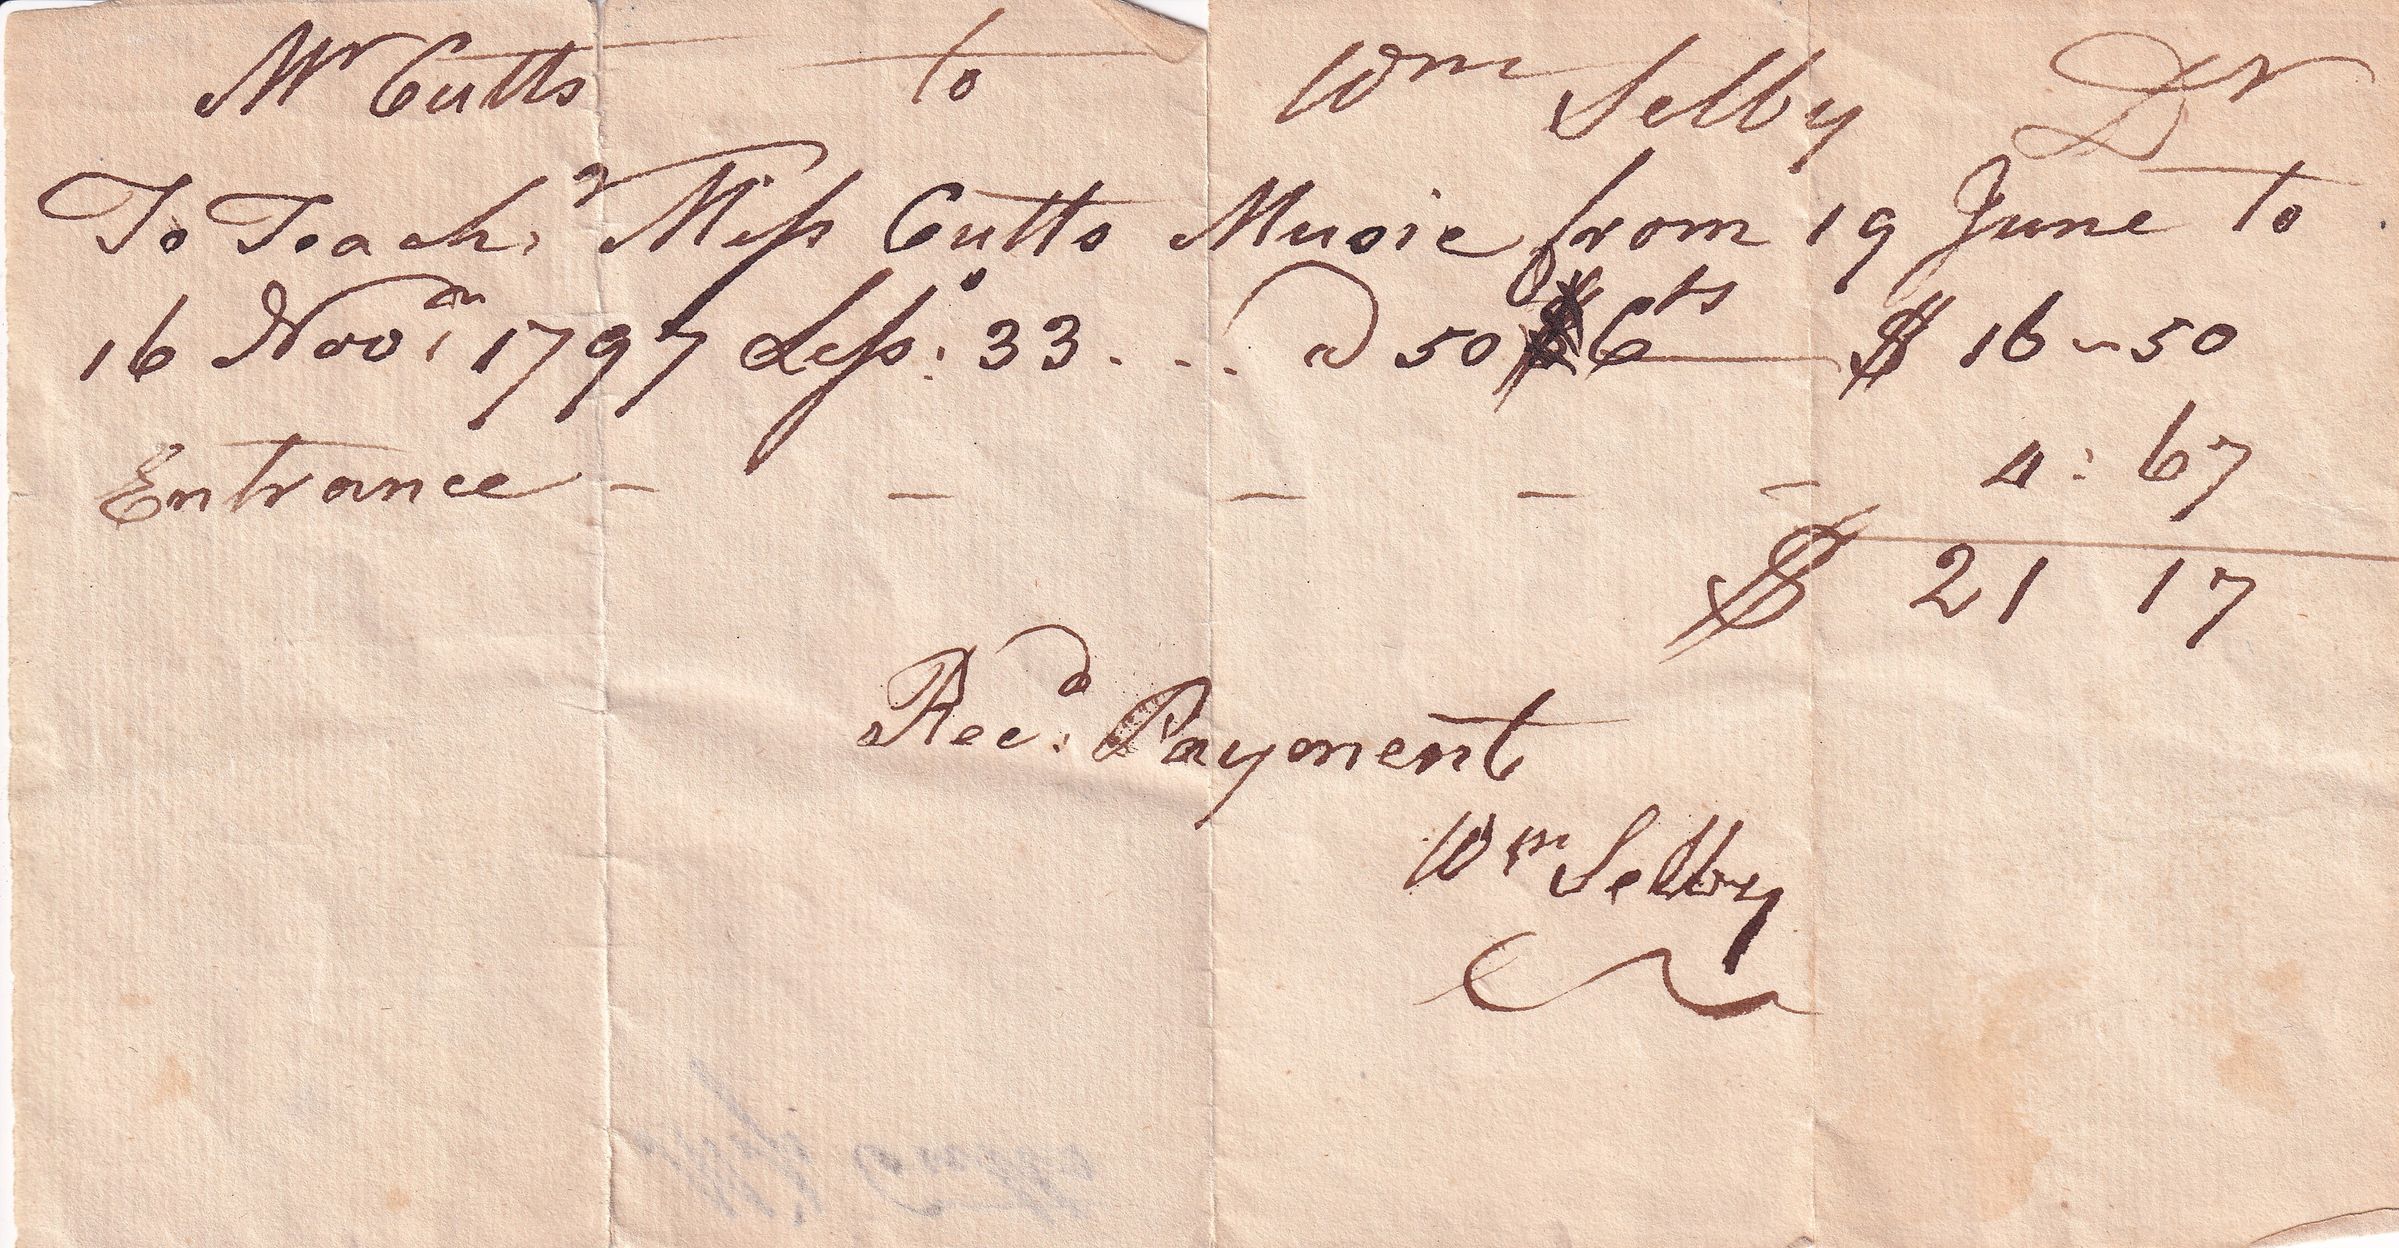 Mr Cutts to Wm Selby Dr
To Teachg Miss Cutts Music from 19 June to
16 Novr 1797 Less: 33 . . . a 50 Cts $ 16-50
Entrance - - - - - 4: 67
$ 21 17
Recd. Payment
Wm Selby